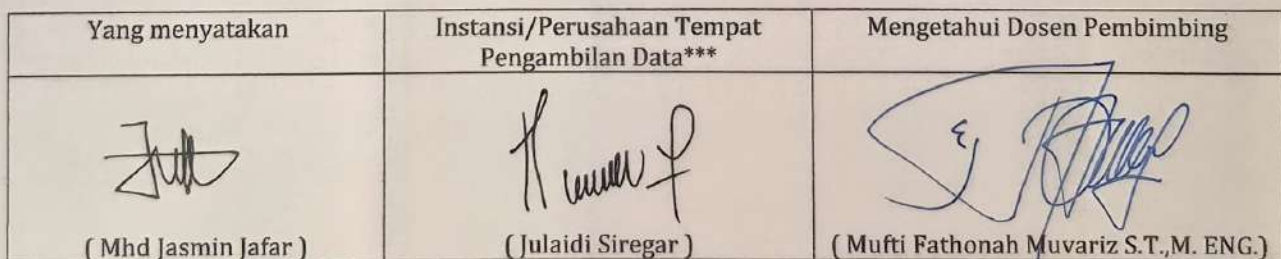 Yang menyatakan
Instansi/Perusahaan Tempat
Pengambilan Data***
Mengetahui Dosen Pembimbing
( Mhd Jasmin Jafar )
( Julaidi Siregar )
( Mufti Fathonah Muvariz S.T.,M. ENG.)